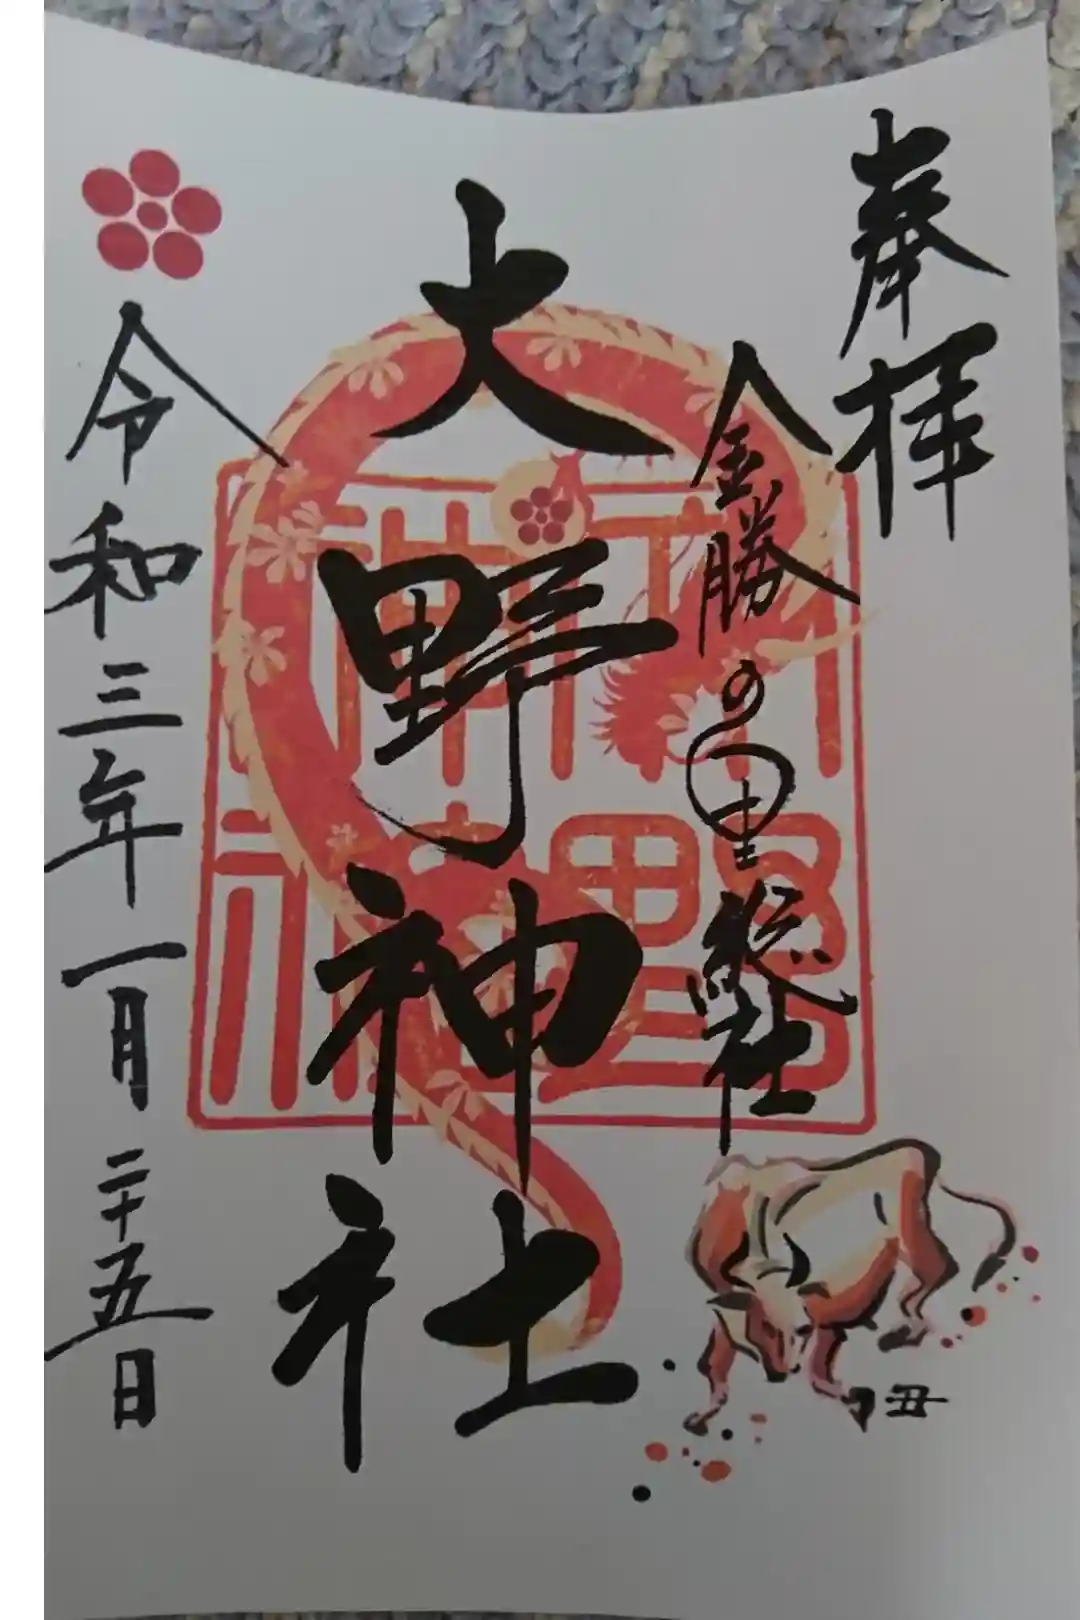 奉拝
金勝の里総社
大野神社
令和三年一月二十五日
丑